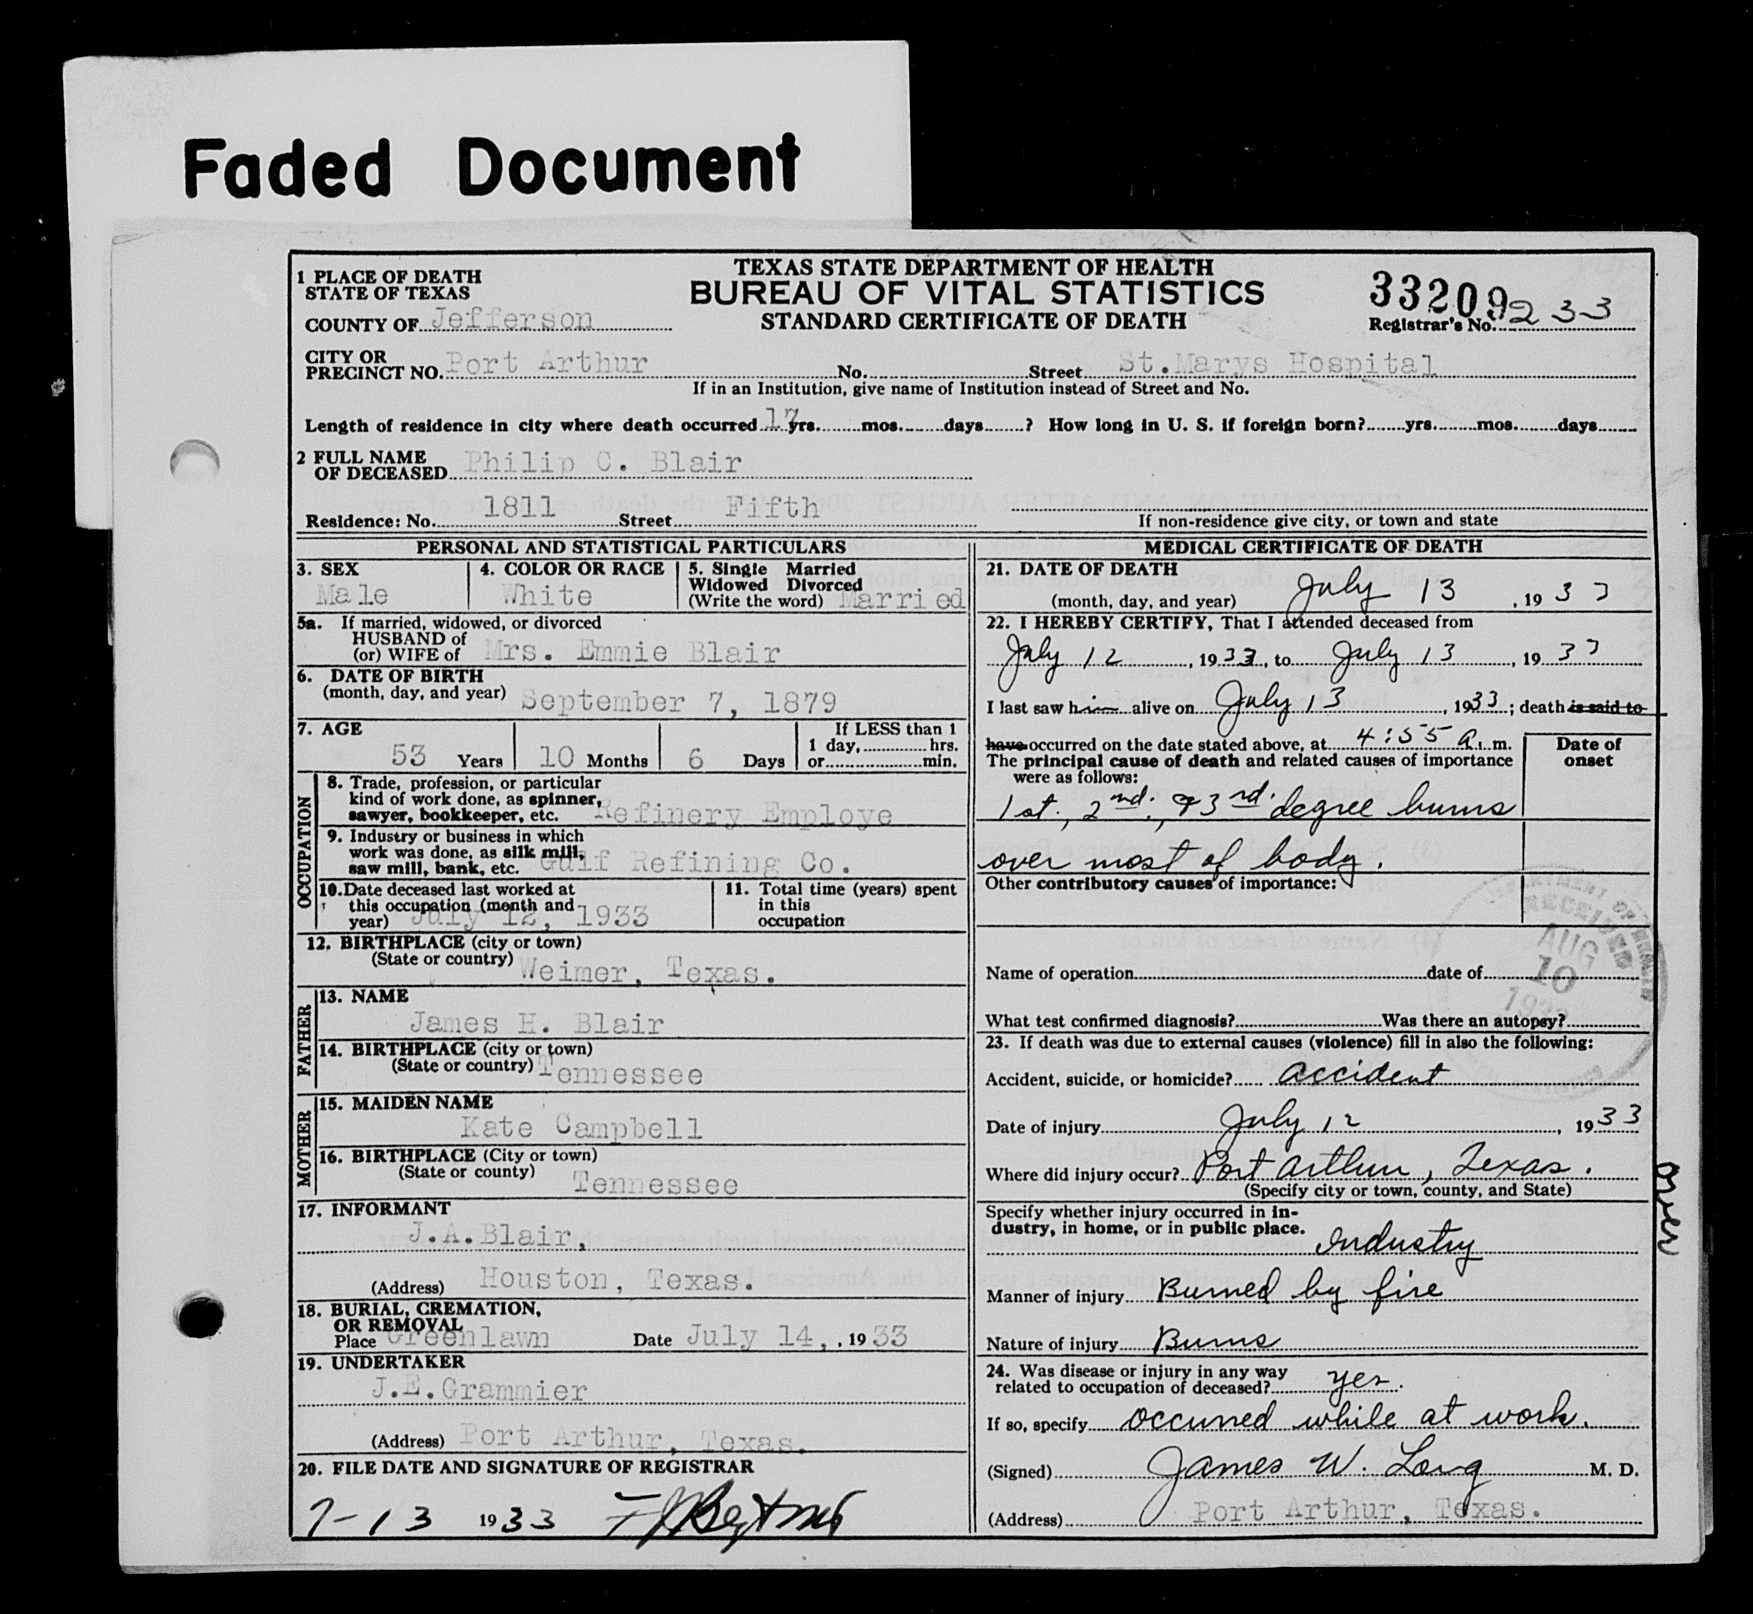 Faded Document
TEXAS STATE DEPARTMENT OF HEALTH
BUREAU OF VITAL STATISTICS
STANDARD CERTIFICATE OF DEATH
33209
Registrar's No. 233
1 PLACE OF DEATH
STATE OF TEXAS
COUNTY OF Jefferson
CITY OR
PRECINCT NO. Port Arthur No. Street St.Marys Hospital
If in an Institution, give name of Institution instead of Street and No.
Length of residence in city where death occurred 17 yrs. mos. days ? How long in U. S. if foreign born? yrs. mos. days
2 FULL NAME
OF DECEASED Philip C. Blair
Residence: No. 1811 Street Fifth
If non-residence give city, or town and state
PERSONAL AND STATISTICAL PARTICULARS
3. SEX
Male
4. COLOR OR RACE
White
5. Single Married
Widowed Divorced
(Write the word) Married
5a. If married, widowed, or divorced
HUSBAND of
(or) WIFE of Mrs. Emmie Blair
6. DATE OF BIRTH
(month, day, and year) September 7, 1879
7. AGE
53 Years 10 Months 6 Days
If LESS than 1
1 day, hrs.
or min.
OCCUPATION
8. Trade, profession, or particular
kind of work done, as spinner,
sawyer, bookkeeper, etc. Refinery Employe
9. Industry or business in which
work was done, as silk mill,
saw mill, bank, etc. Gulf Refining Co.
10. Date deceased last worked at
this occupation (month and
year) July 12, 1933
11. Total time (years) spent
in this
occupation
12. BIRTHPLACE (city or town)
(State or country) Weimer, Texas.
FATHER
13. NAME
James H. Blair
14. BIRTHPLACE (city or town)
(State or country) Tennessee
MOTHER
15. MAIDEN NAME
Kate Campbell
16. BIRTHPLACE (City or town)
(State or county) Tennessee
17. INFORMANT
J.A.Blair,
(Address) Houston, Texas.
18. BURIAL, CREMATION,
OR REMOVAL
Place Greenlawn Date July 14, , 1933
19. UNDERTAKER
J.E.Grammier
(Address) Port Arthur, Texas.
20. FILE DATE AND SIGNATURE OF REGISTRAR
7-13 1933
MEDICAL CERTIFICATE OF DEATH
21. DATE OF DEATH
(month, day, and year) July 13 , 1933
22. I HEREBY CERTIFY, That I attended deceased from
July 12 , 1933, to July 13 , 1933
I last saw him alive on July 13 , 1933; death is said to
have occurred on the date stated above, at 4:55 A. m.
The principal cause of death and related causes of importance
were as follows:
Date of
onset
1st., 2nd., & 3rd. degree burns
over most of body.
Other contributory causes of importance:
DEPARTMENT OF HEALTH
RECEIVED
AUG
10
Name of operation date of
What test confirmed diagnosis? Was there an autopsy?
23. If death was due to external causes (violence) fill in also the following:
Accident, suicide, or homicide? accident
Date of injury July 12 , 1933
Where did injury occur? Port Arthur, Texas.
(Specify city or town, county, and State)
Specify whether injury occurred in in-
dustry, in home, or in public place. industry
Manner of injury Burned by fire
Nature of injury Burns
24. Was disease or injury in any way
related to occupation of deceased? yes.
If so, specify occurred while at work.
(Signed) James W. Long M. D.
(Address) Port Arthur, Texas.
over